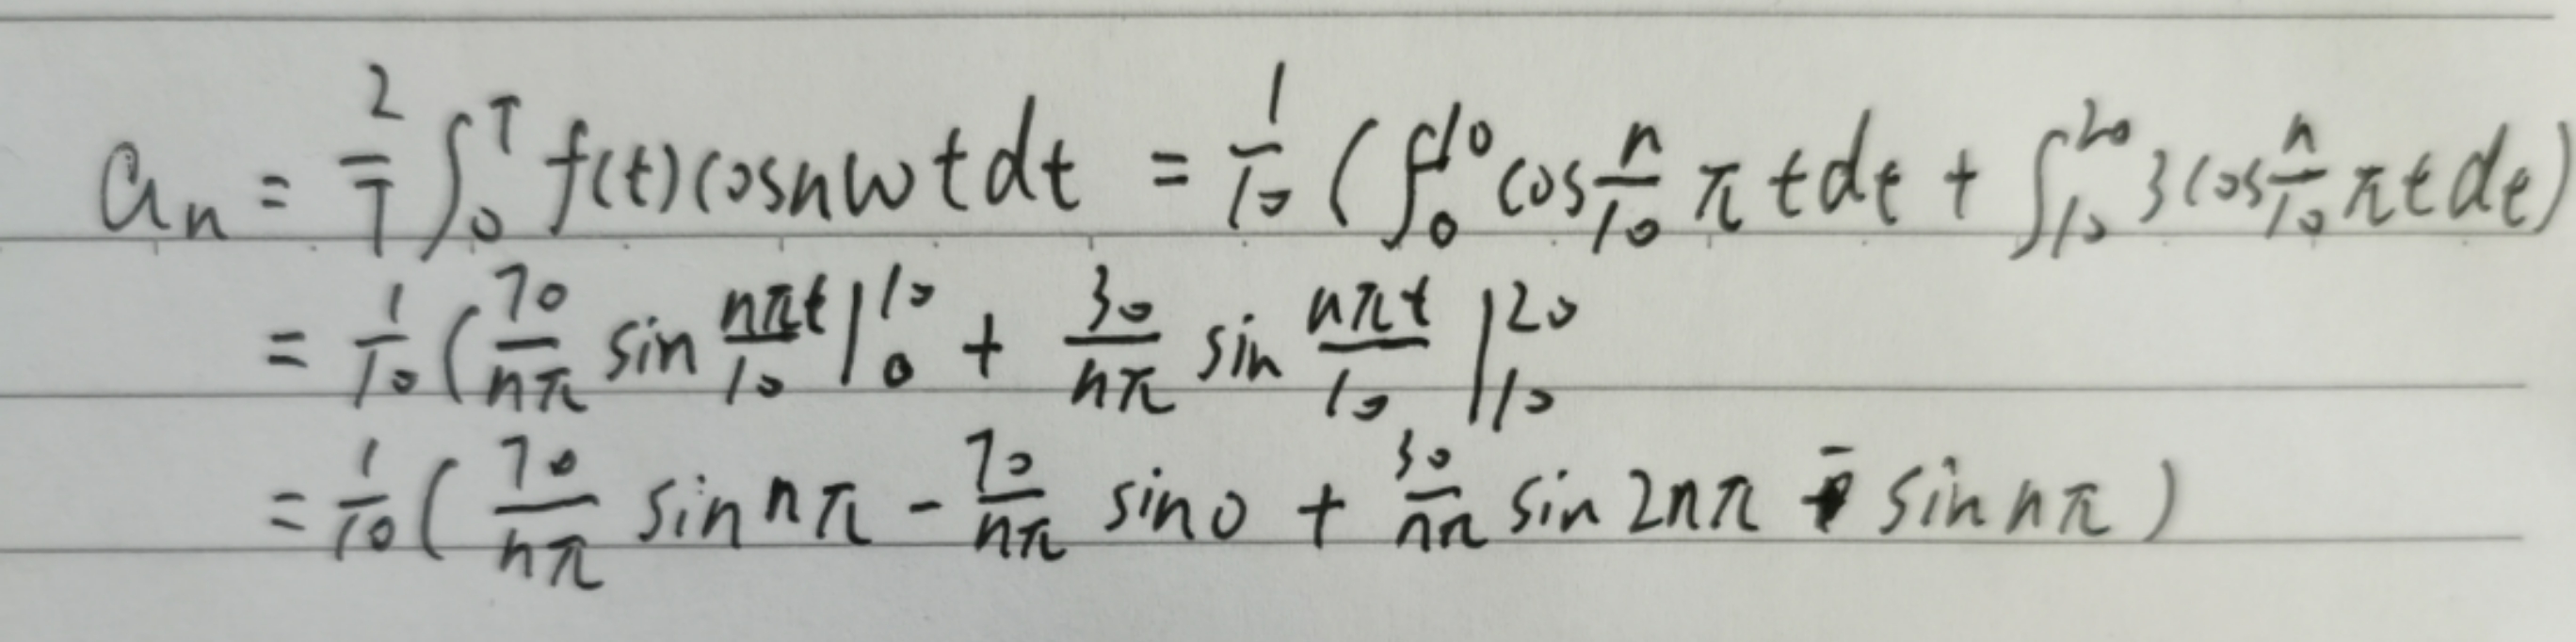 aₙ = 2/T ∫₀ᵀ f(t) cosnωt dt = 1/10 (∫₀¹⁰ cos n/10 πt dt + ∫₁₀²⁰ 3cos n/10 πt dt)
= 1/10 (70/nπ sin nπt/10 |₀¹⁰ + 30/nπ sin nπt/10 |₁₀²⁰
= 1/10 (70/nπ sin nπ - 70/nπ sin0 + 30/nπ sin 2nπ - sin nπ)